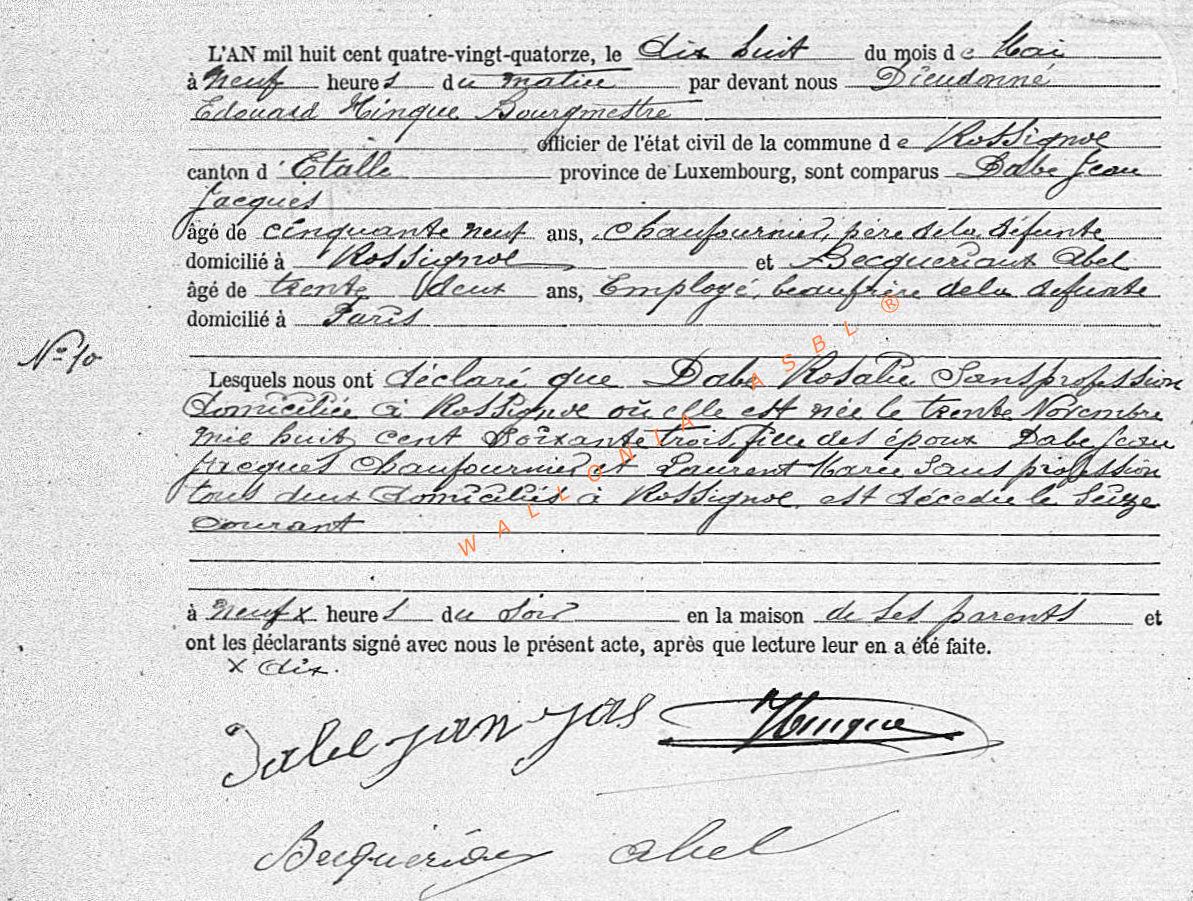 L'AN mil huit cent quatre-vingt-quatorze, le dix huit du mois de Mai
à neuf heures du matin par devant nous Dieudonné
Edouard Hinque Bourgmestre
officier de l'état civil de la commune de Rossignol
canton d'Etalle province de Luxembourg, sont comparus Dabe Jean
Jacques
âgé de cinquante neuf ans, chaufournier, père de la défunte
domicilié à Rossignol et Becqueriaux Abel
âgé de trente deux ans, Employé, beaufrère de la defunte
domicilié à Paris
N° 10
Lesquels nous ont déclaré que Dabe Rosalie Sans profession
domiciliée à Rossignol où elle est née le trente Novembre
mil huit cent soixante trois, fille des époux Dabe Jean
Jacques Chaufournier et Laurent Marie Sans profession
tous deux domiciliés à Rossignol, est décédée le Seize
courant
à neuf x heures du soir en la maison de ses parents et
ont les déclarants signé avec nous le présent acte, après que lecture leur en a été faite.
x dix.
Hinque
Abel
WALLONIA ASBL ®